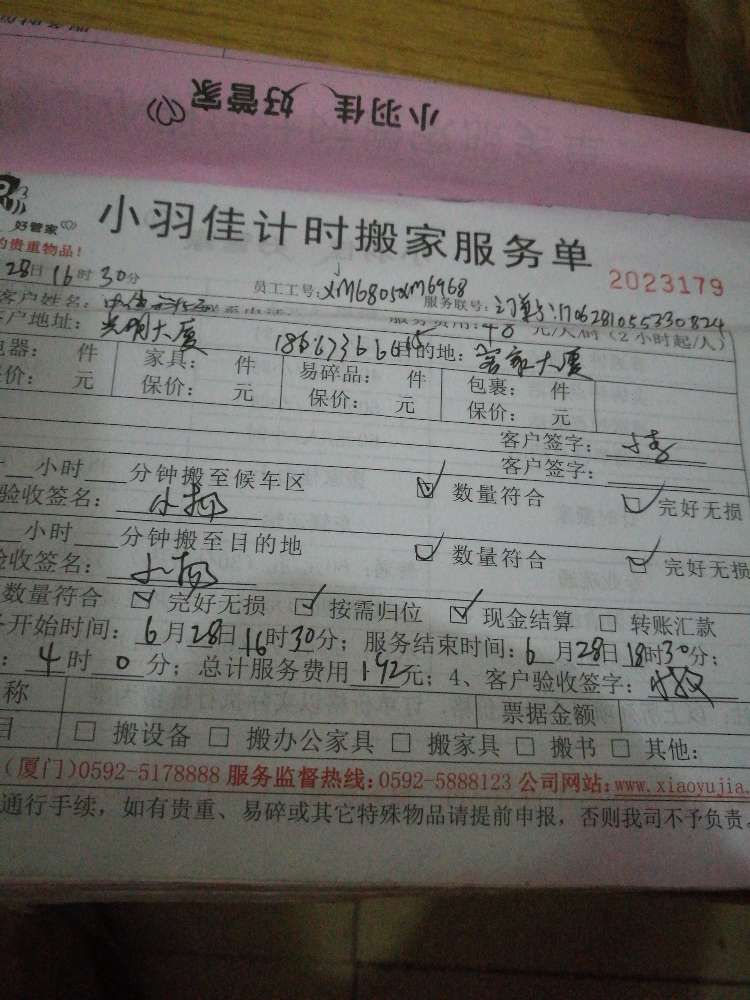 小羽佳 好管家
好管家
小羽佳计时搬家服务单
的贵重物品！
2023179
28日16时30分
员工工号：XM6805XM6968
服务联号：订单号：1706281055330824
客户姓名：
服务费用：48元/人时（2小时起/人）
客户地址：光明大厦
目的地：客家大厦
电器： 件 家具： 件 易碎品： 件 包裹： 件
保价： 元 保价： 元 保价： 元 保价： 元
客户签字：
小时 分钟搬至候车区 客户签字：
验收签名： 数量符合 完好无损
小时 分钟搬至目的地
验收签名： 数量符合 完好无损
数量符合 完好无损 按需归位 现金结算 转账汇款
开始时间：6月28日16时30分；服务结束时间：6月28日18时30分；
：4时0分；总计服务费用192元；4、客户验收签字：
称 票据金额
目 搬设备 搬办公家具 搬家具 搬书 其他：
（厦门）0592-5178888 服务监督热线：0592-5888123 公司网站：www.xiaoyujia.
通行手续，如有贵重、易碎或其它特殊物品请提前申报，否则我司不予负责。